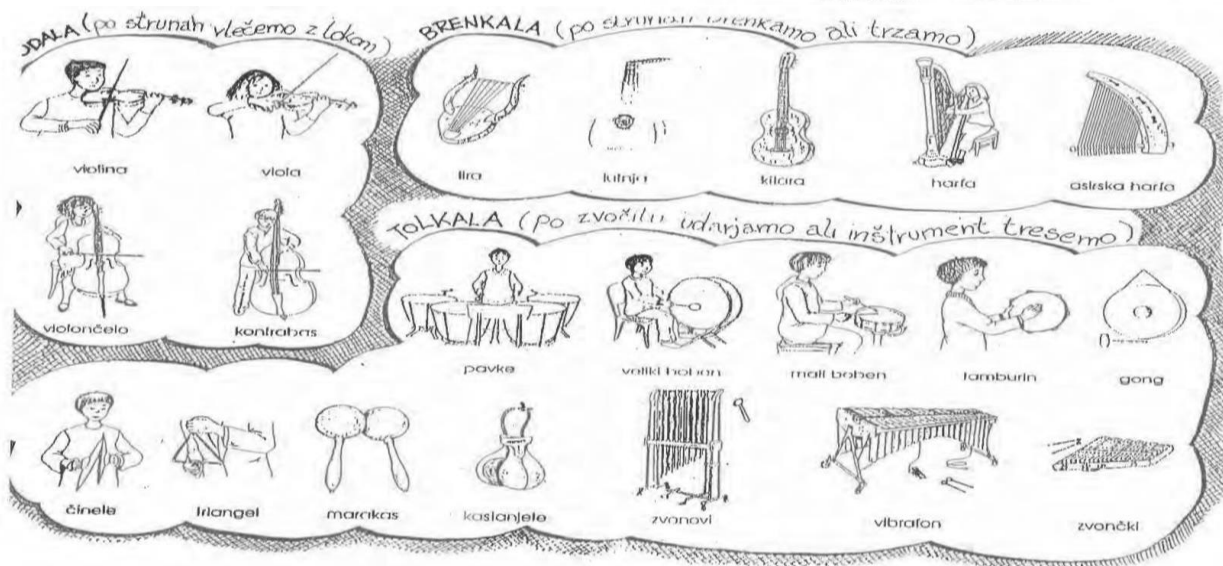 ODALA (po strunah vlečemo z lokom)
violina viola
violončelo kontrabas
BRENKALA (po strunah brenkamo ali trzamo)
lira lutnja kitara harfa asirska harfa
TOLKALA (po zvočilu udarjamo ali inštrument tresemo)
pavke veliki boben mali boben tamburin gong
činele triangel marakas kastanjete zvonovi vibrafon zvončki